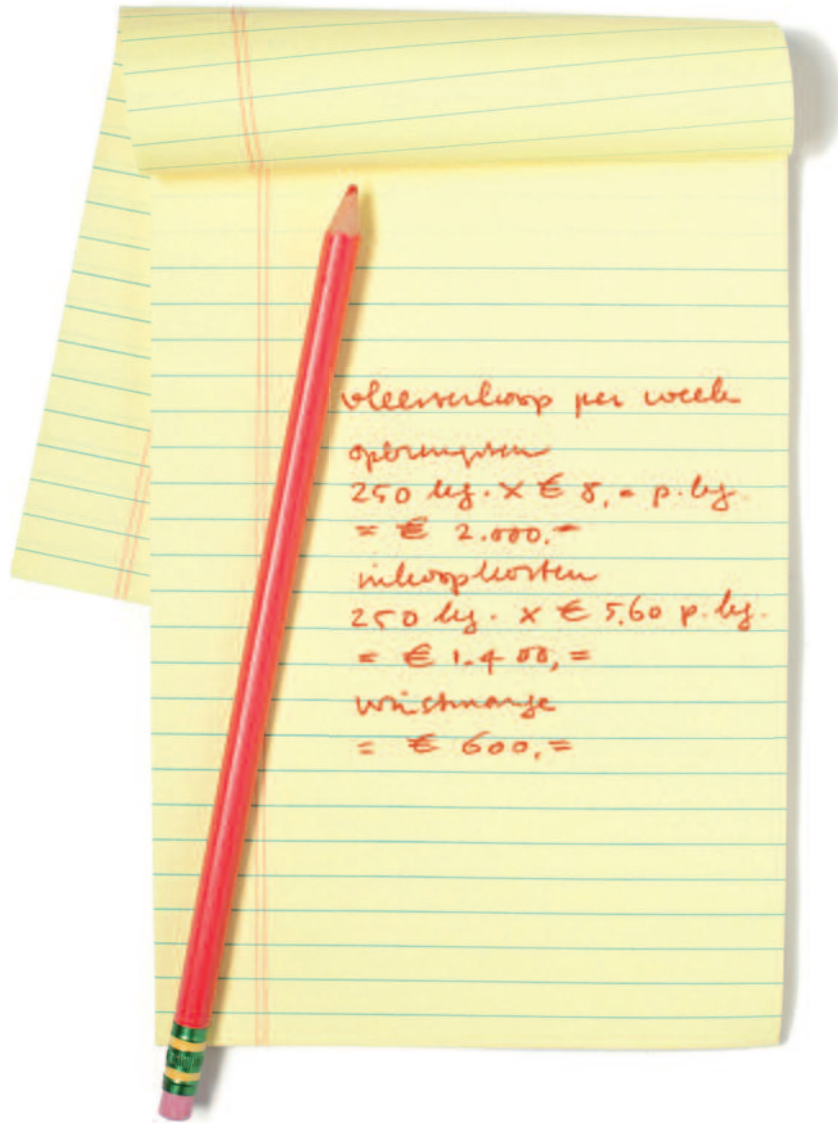 vleesverkoop per week
opbrengsten
250 kg. x € 8,= p. kg.
= € 2.000.=
inkoopkosten
250 kg. x € 5,60 p. kg.
= € 1.400,=
winstmarge
= € 600,=